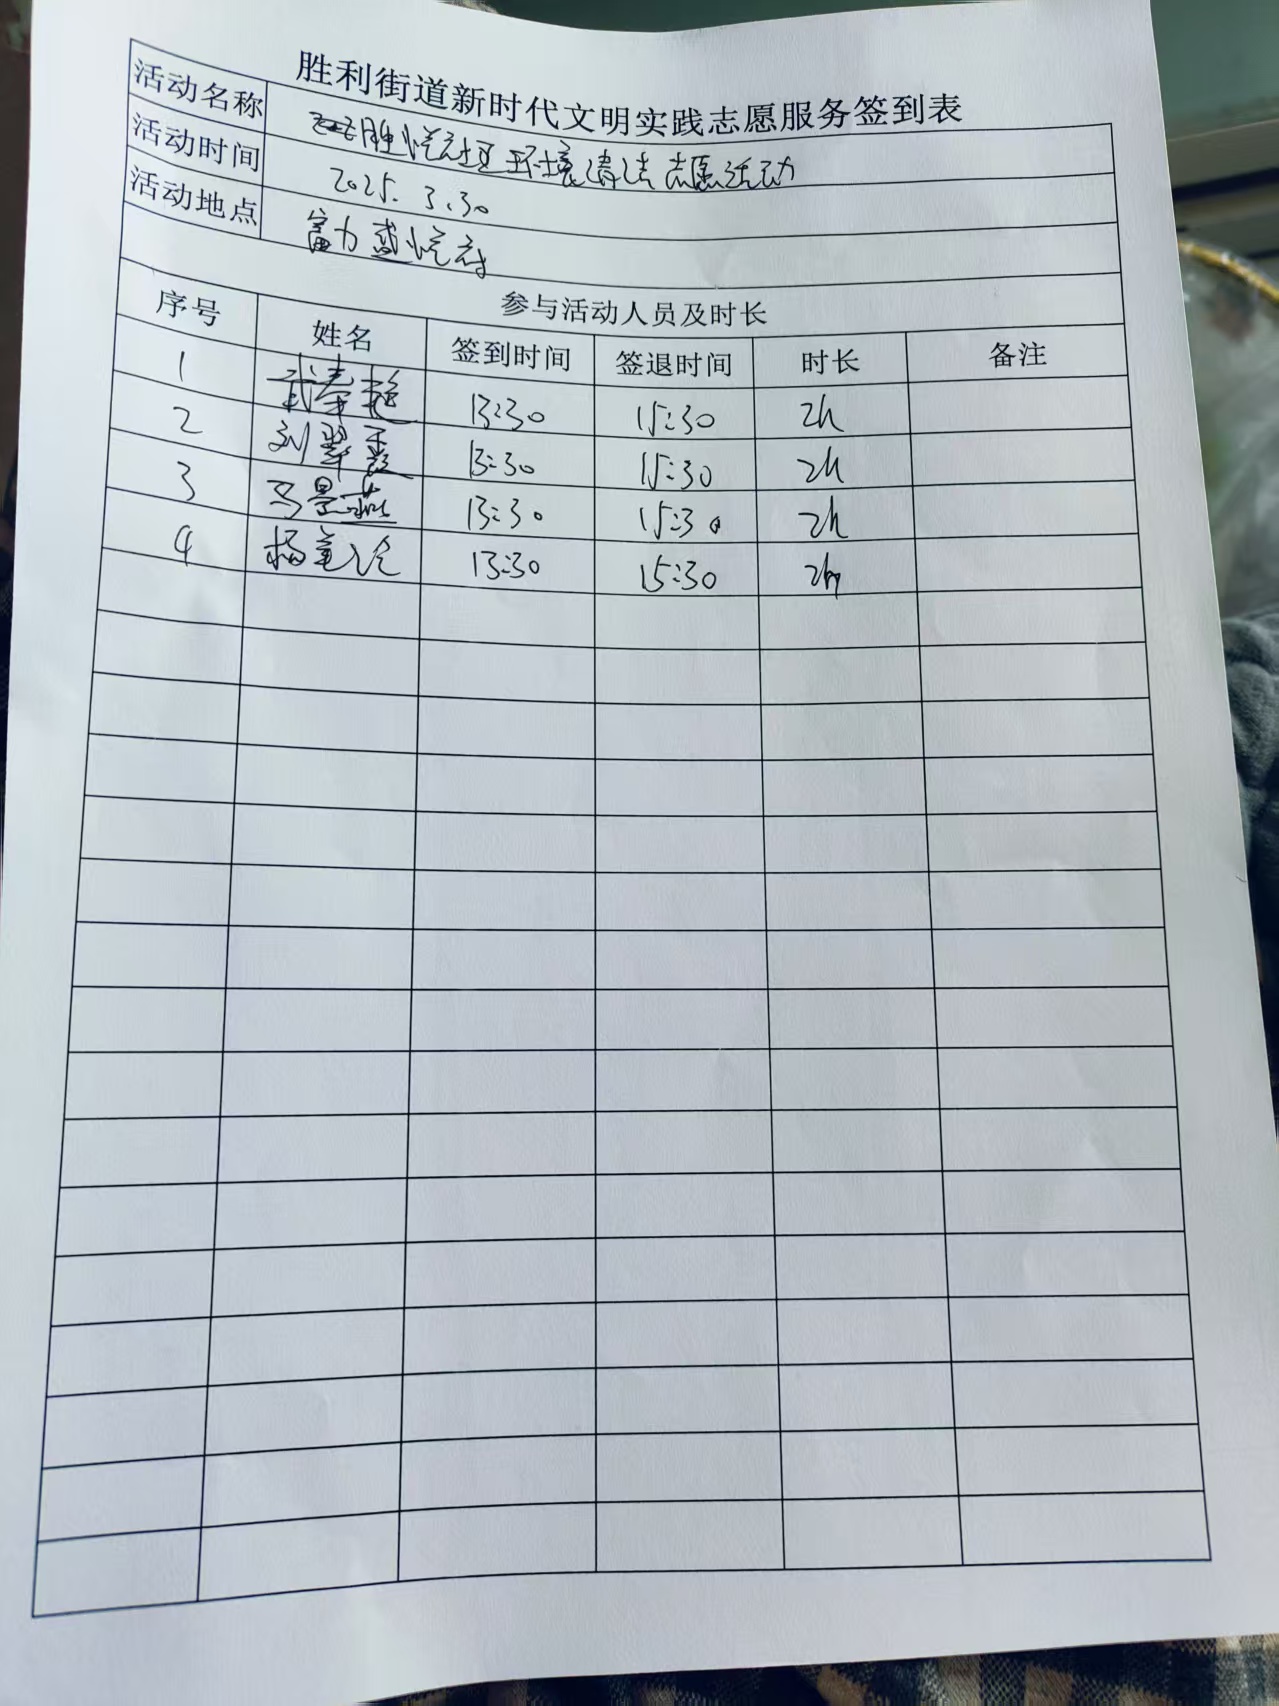 胜利街道新时代文明实践志愿服务签到表
活动名称 胜悦社区环境清洁志愿活动
活动时间 2025.3.30
活动地点 富力盛悦府
参与活动人员及时长
序号 姓名 签到时间 签退时间 时长 备注
1 武春艳 13:30 15:30 2h
2 刘翠霞 13:30 15:30 2h
3 马景燕 13:30 15:30 2h
4 杨 13:30 15:30 2h